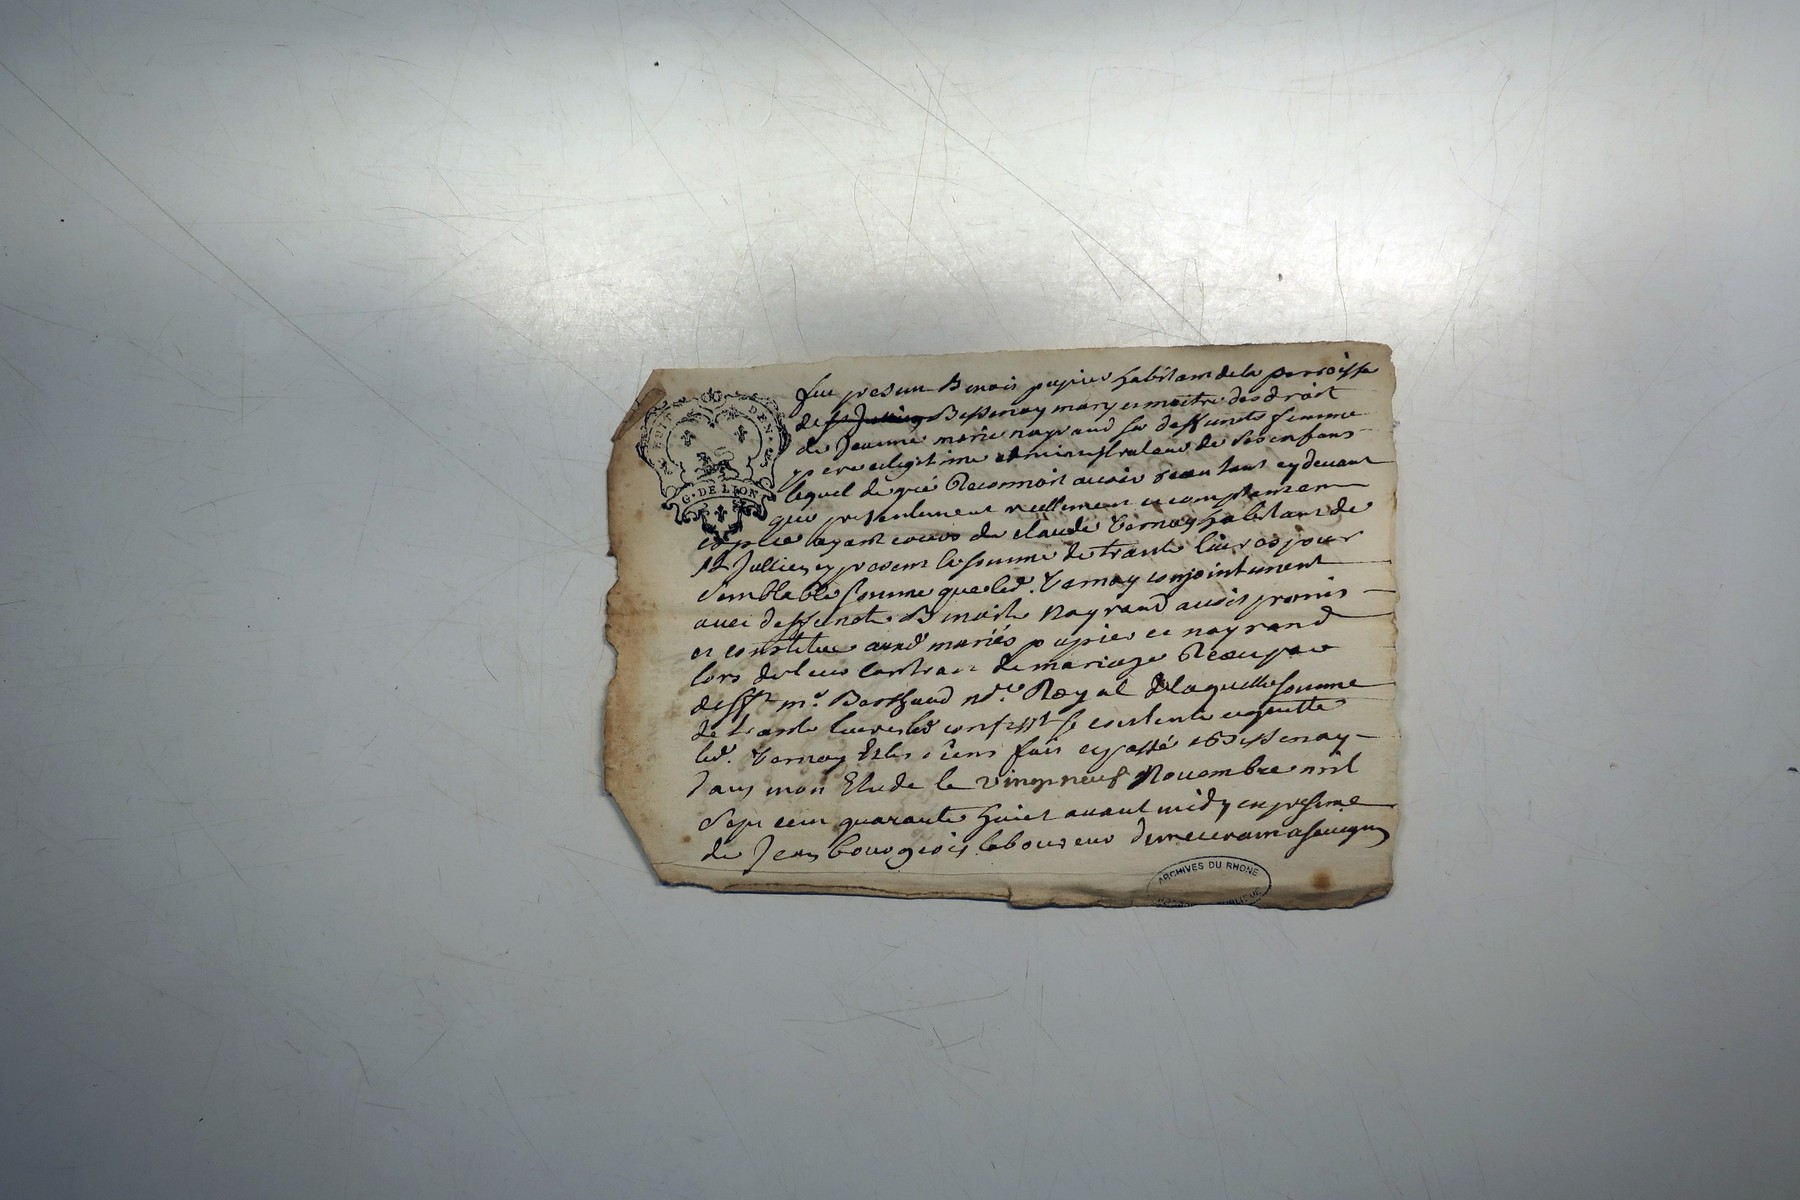 HUIT DEN.
G. DE LION
fut presant Benois papier habitant de la parroisse
de st Jullien Bessenay mary et maitre des droit
de Jeanne marie nayrand sa deffunte femme
pere et legitime administrateur de ses enfans
lequel de gré Reconnoit avoir receu tant cy devant
que presentement reellement et comptament en
espece ayant cours de claude Vernay habitant de
st Jullien cy present la somme de trante livres pour
semblable somme que led. Vernay conjointement
avec deffunte Benoite Nayrand avoit promis
et constitué auxd mariés papier et nayrand
lors de leur Contract de mariage Receu par
defft me. Berthaud nore Royal de laquelle somme
de trante livres led confesst se contente et quitte
led. Vernay Et les siens fait et passé a Bessenay
dans mon Etude le vingt neuf Novembre mil
sept cent quarante huict avant midy en presence
de Jean bourgeois laboureur demeurant a Savigny
ARCHIVES DU RHONE